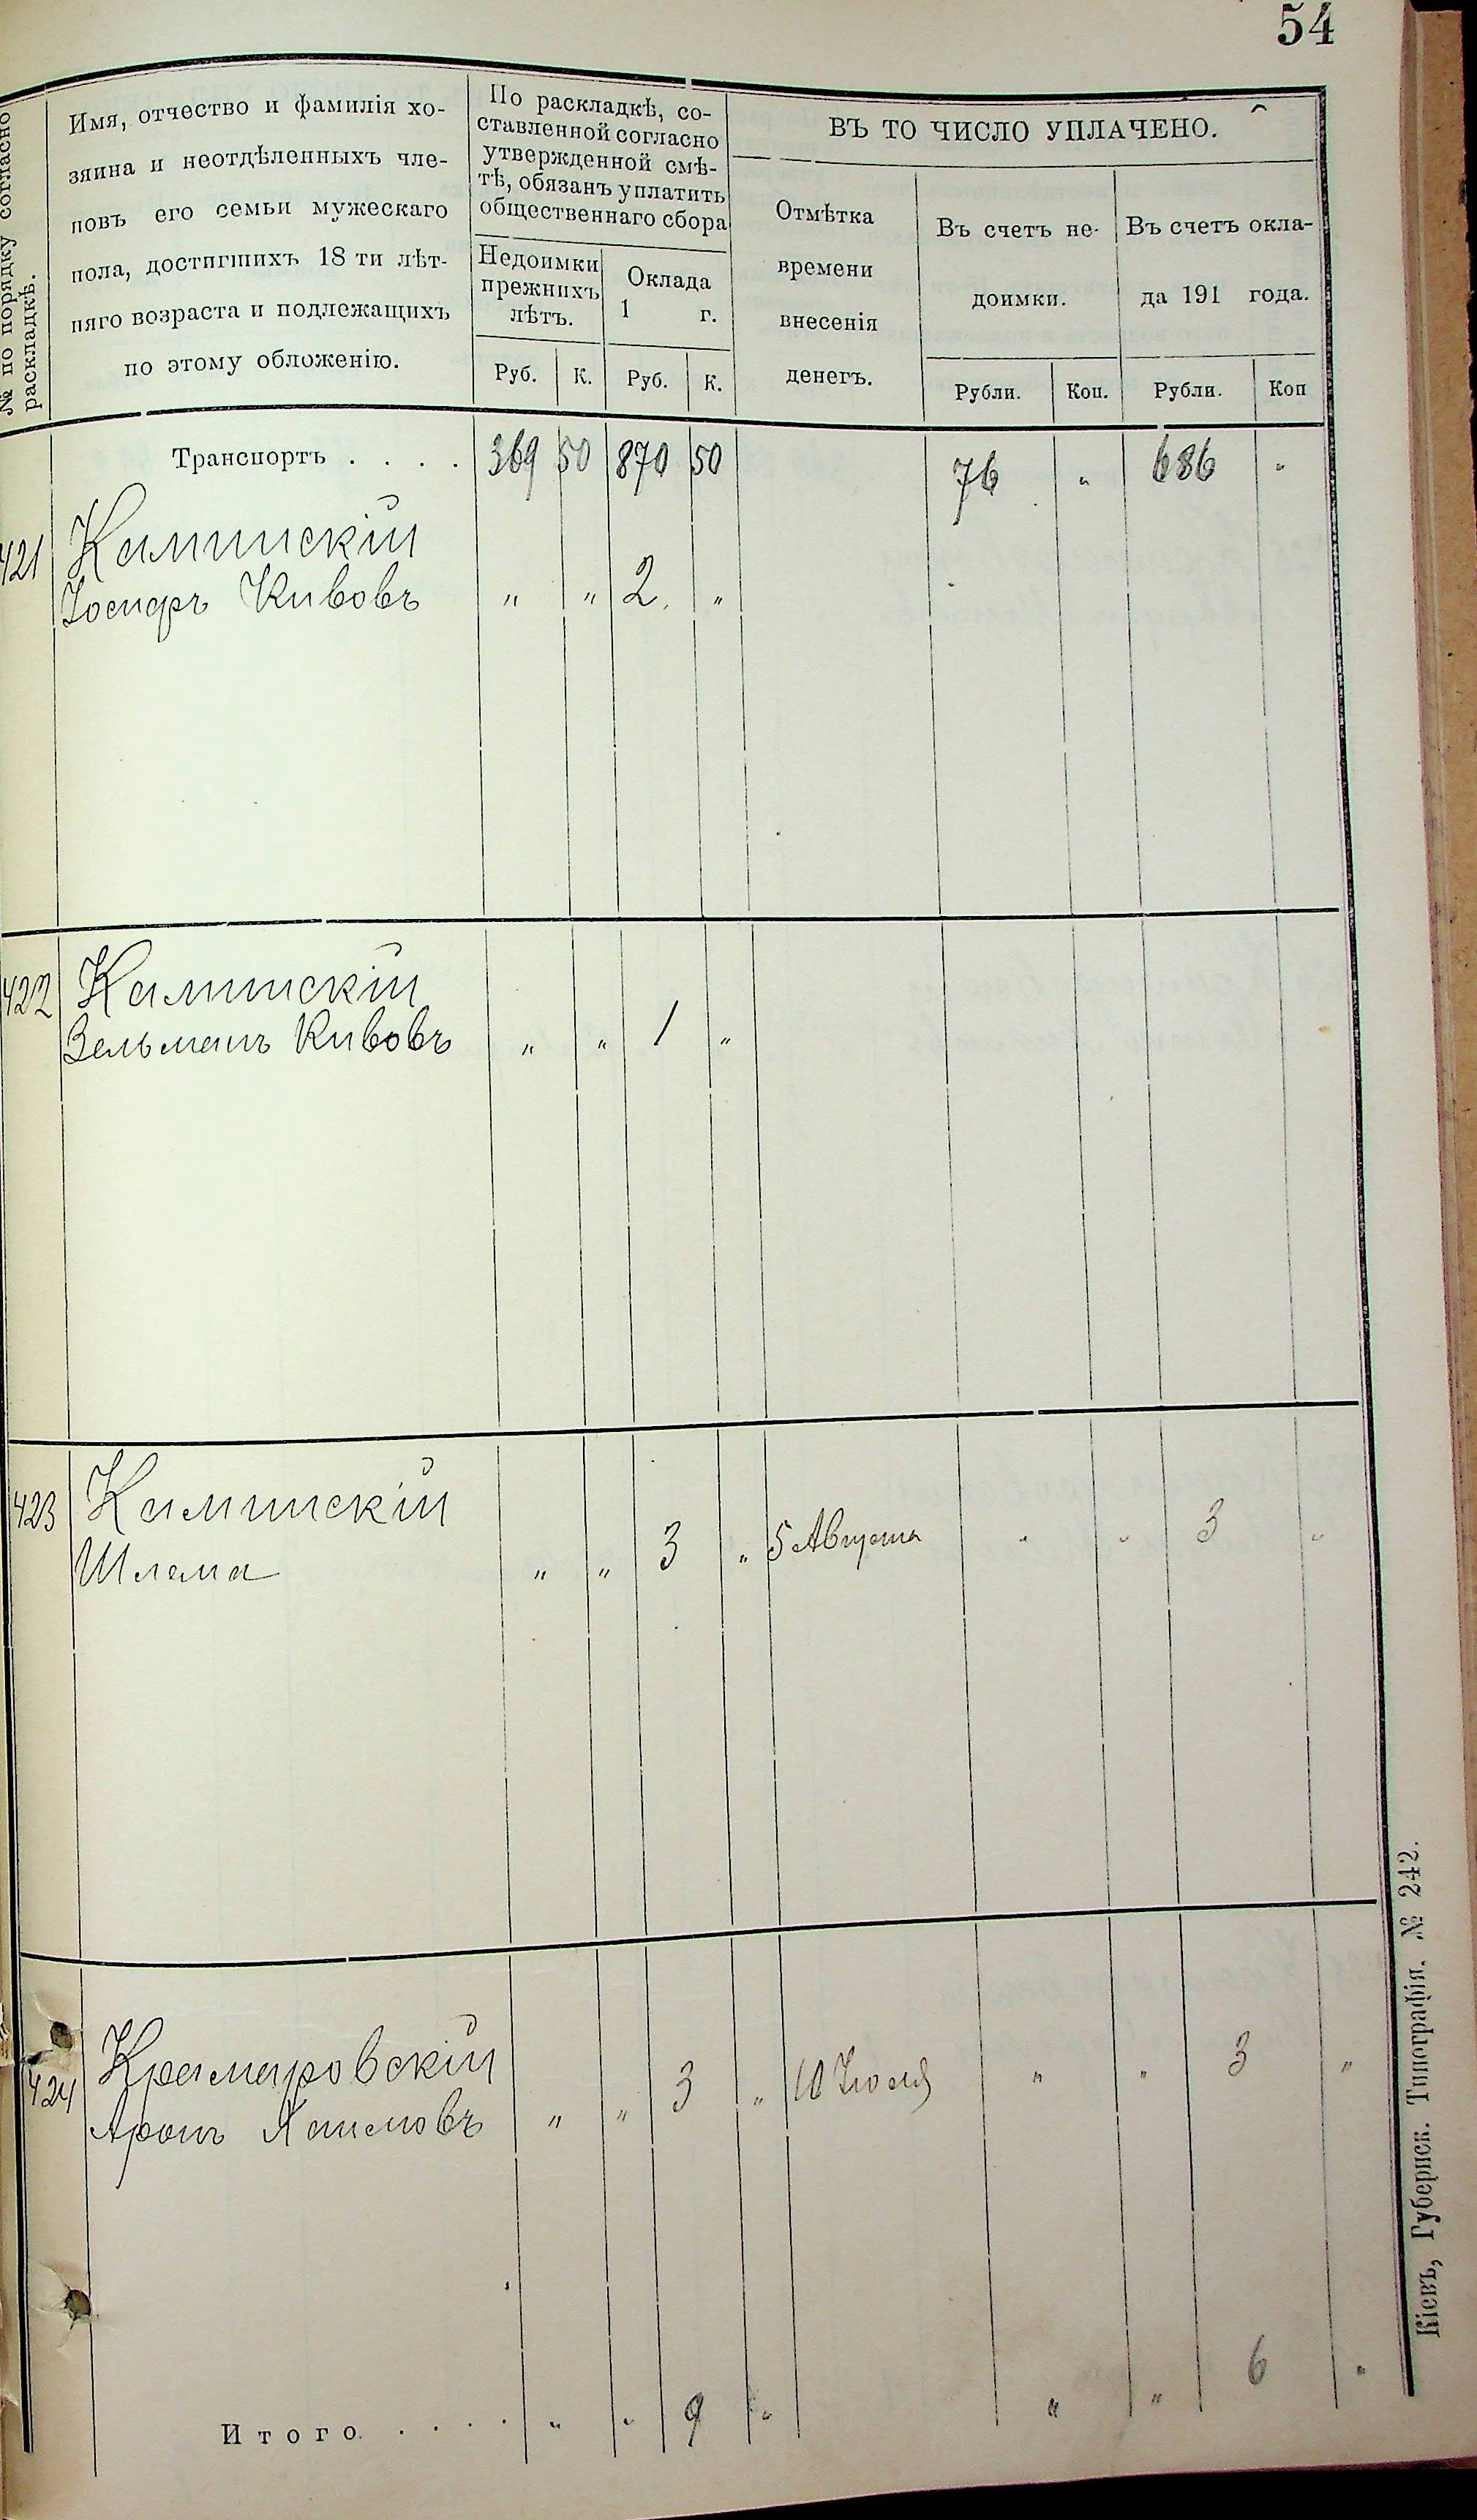 54
№ по порядку согласно
раскладкѣ.
Имя, отчество и фамилія хо-
зяина и неотдѣленныхъ чле-
новъ его семьи мужескаго
пола, достигшихъ 18 ти лѣт-
няго возраста и подлежащихъ
по этому обложенію.
По раскладкѣ, со-
ставленной согласно
утвержденной смѣ-
тѣ, обязанъ уплатить
общественнаго сбора
Недоимки
прежнихъ
лѣтъ.
Оклада
1 г.
Руб. К. Руб. К.
ВЪ ТО ЧИСЛО УПЛАЧЕНО.
Отмѣтка
времени
внесенія
денегъ.
Въ счетъ не-
доимки.
Въ счетъ окла-
да 191 года.
Рубли. Коп. Рубли. Коп
Транспортъ . . . . 369 50 870 50 76 " 686 "
421 Каминскій
Іосифъ Кивовъ " " 2. "
422 Каминскій
Зельманъ Кивовъ " " 1 "
423 Каминскій
Шлема " " 3 " 5 Августа " " 3 "
424 Крамаровскій
Аронъ Хаимовъ " " 3 " 10 Іюля " " 3 "
Итого. . . . . " " 9 " " " 6 "
Кіевъ, Губернск. Типографія. № 242.